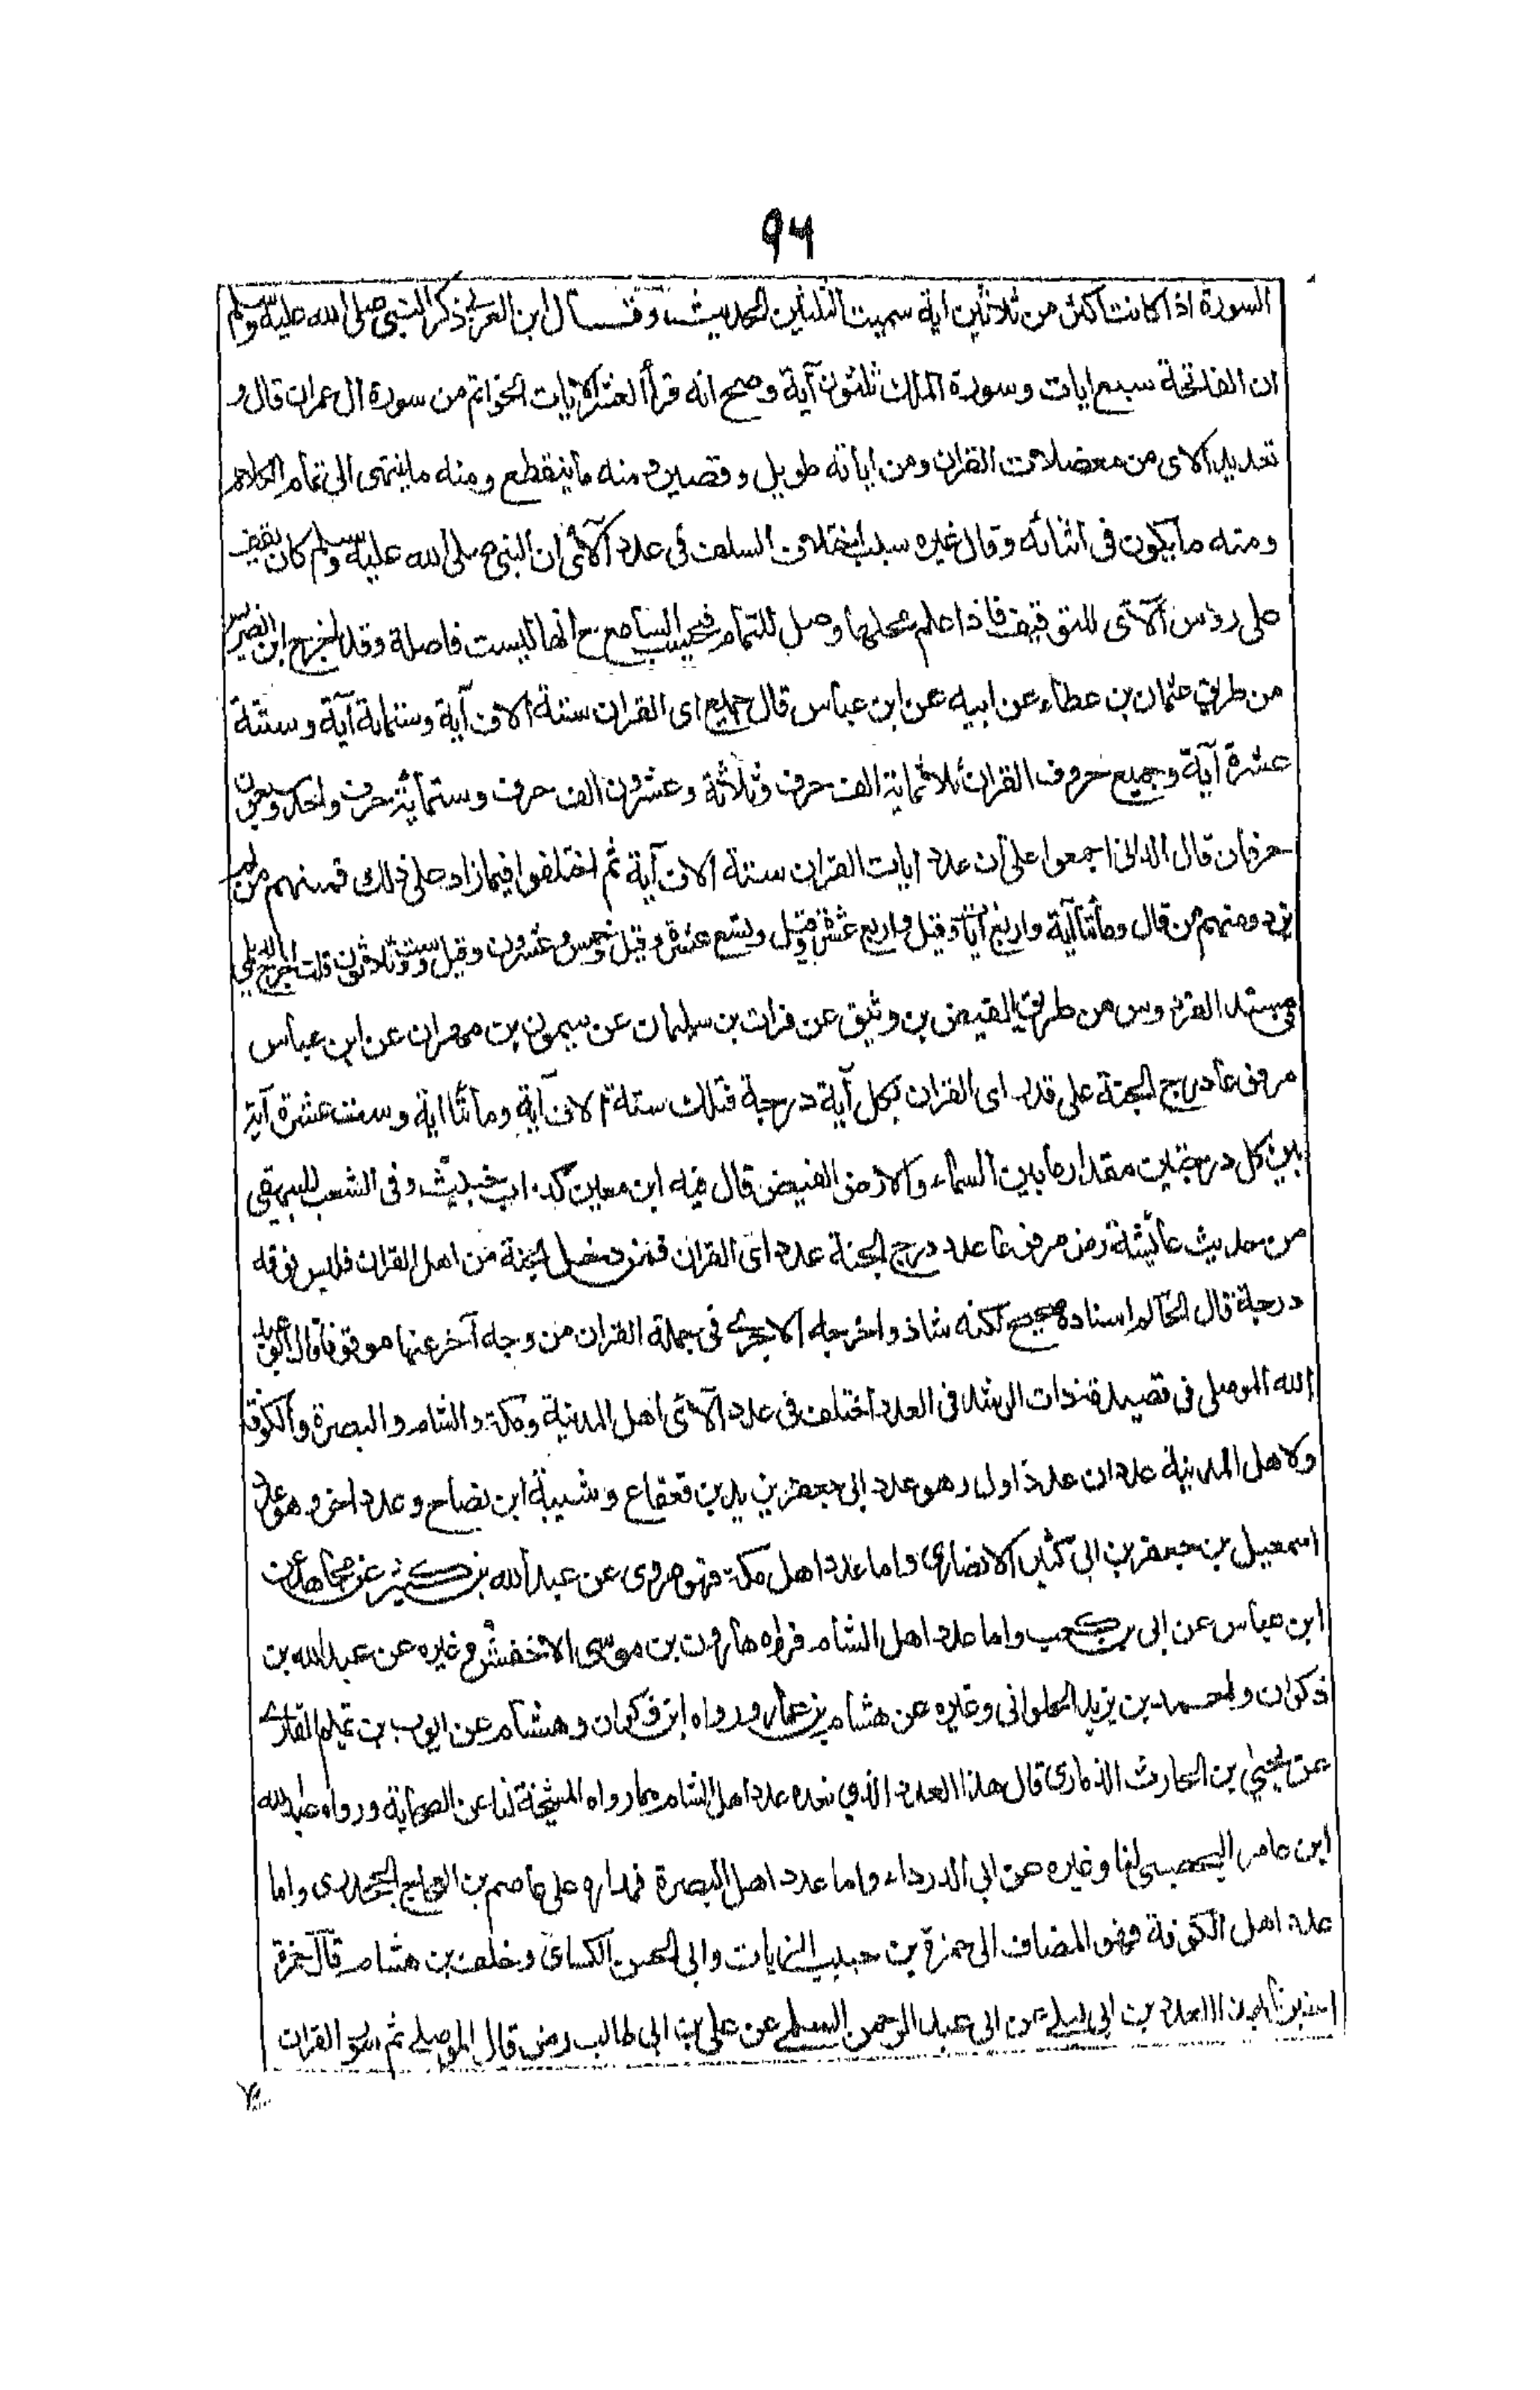 ٩٤
السورة اذا كانت اكثر من ثلاثين اية سميت الثلثين الحديث وقال ابن العربي ذكر النبي صلى الله عليه وسلم
ان الفاتحة سبع ايات وسورة الملك ثلثون آية وصح انه قرأ العشر الآيات الخواتم من سورة ال عمران قال و
تعديد الاى من معضلات القران ومن اياته طويل وقصير ومنه ما ينقطع ومنه ما ينتهى الى تمام الكلام
ومنه ما يكون فى اثنائه وقال غيره سبب اختلاف السلف فى عدد الآى ان النبى صلى الله عليه وسلم كان يقف
على رؤس الآى للتوقيف فاذا علم محلها وصل للتمام فيحسب السامع ح انها ليست فاصلة وقد اخرج ابن الضريس
من طريق عثمان بن عطاء عن ابيه عن ابن عباس قال جميع اى القران ستة الاف آية وستمائة آية وستة
عشرة آية وجميع حروف القران ثلاثمائة الف حرف وثلاثة وعشرون الف حرف وستمائة حرف واحد وسبعون
حرفا ن قال الدانى اجمعوا على ان عدد ايات القران ستة الاف آية ثم اختلفوا فيما زاد على ذلك فمنهم من لم
يزد ومنهم من قال ومائتا آية واربع آيات وقيل واربع عشرة وقيل وتسع عشرة وقيل وخمس وعشرون وقيل وست وثلاثون قلت اخرج الديلمى
فى مسند الفردوس من طريق الفيض بن وثيق عن فرات بن سلمان عن ميمون بن مهران عن ابن عباس
مرفوعا درج الجنة على قدر اى القران بكل آية درجة فتلك ستة الاف آية ومائتا اية وست عشرة آية
بين كل درجتين مقدار ما بين السماء والارض الفيض قال فيه ابن معين كذاب خبيث وفى الشعب للبيهقى
من حديث عائشة رض مرفوعا عدد درج الجنة عدد اى القران فمن دخل الجنة من اهل القران فليس فوقه
درجة قال الحاكم اسناده صحيح لكنه شاذ واخرجه الاجرى فى حملة القران من وجه آخر عنها موقوفا قال ابو عبد
الله الموصلى فى قصيدة ذات الرشد فى العدد اختلف فى عدد الآى اهل المدينة ومكة والشام والبصرة والكوفة
ولاهل المدينة عددان عدد اول وهو عدد ابى جعفر يزيد بن قعقاع وشيبة ابن نصاح وعدد اخر وهو عدد
اسمعيل بن جعفر بن ابى كثير الانصارى واما عدد اهل مكة فهو مروى عن عبد الله بن كثير عن مجاهد عن
ابن عباس عن ابى بن كعب واما عدد اهل الشام فرواه هارون بن موسى الاخفش وغيره عن عبد الله بن
ذكوان واحمد بن يزيد الحلوانى وغيره عن هشام بن عمار ورواه ابن ذكوان وهشام عن ايوب بن تميم القارى
عن يحيى بن الحارث الذمارى قال هذا العدد الذى نعده عدد اهل الشام مما رواه المشيخة لنا عن الصحابة ورواه عبد الله
ابن عامر اليحصبى لنا وغيره عن ابى الدرداء واما عدد اهل البصرة فمداره على عاصم بن العجاج الجحدرى واما
عدد اهل الكوفة فهو المضاف الى حمزة بن حبيب الزيات وابى الحسن الكسائى وخلف بن هشام قال حمزة
اخبرنا بهذا العدد بن ابى ليلى عن ابى عبد الرحمن السلمى عن على بن ابى طالب رض قال الموصلى ثم سور القران